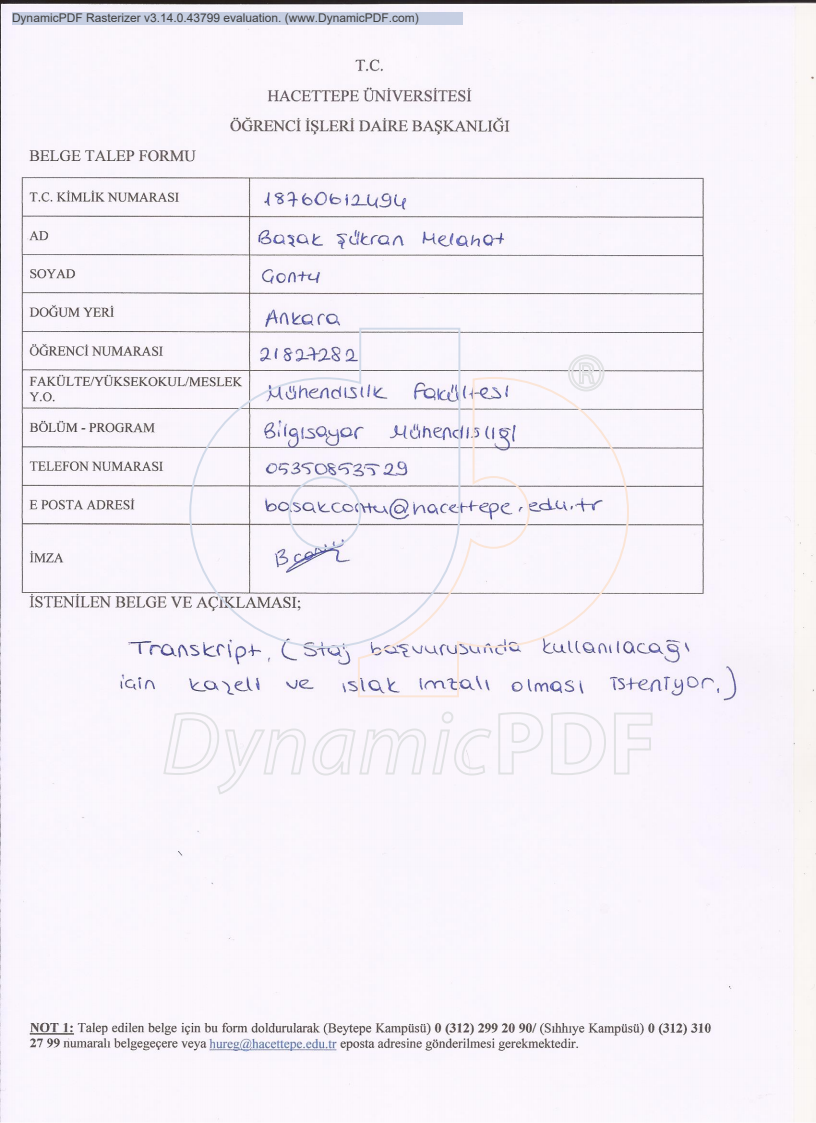 DynamicPDF Rasterizer v3.14.0.43799 evaluation. (www.DynamicPDF.com)
T.C.
HACETTEPE ÜNİVERSİTESİ
ÖĞRENCİ İŞLERİ DAİRE BAŞKANLIĞI
BELGE TALEP FORMU
T.C. KİMLİK NUMARASI 18760612494
AD Başak Şükran Melahat
SOYAD Contu
DOĞUM YERİ Ankara
ÖĞRENCİ NUMARASI 21827282
FAKÜLTE/YÜKSEKOKUL/MESLEK Y.O. Mühendislik Fakültesi
BÖLÜM - PROGRAM Bilgisayar Mühendisliği
TELEFON NUMARASI 05350853529
E POSTA ADRESİ basakcontu@hacettepe.edu.tr
İMZA
İSTENİLEN BELGE VE AÇIKLAMASI;
Transkript. (Staj başvurusunda kullanılacağı
için kaşeli ve ıslak imzalı olması isteniyor.)
DynamicPDF
®
NOT 1: Talep edilen belge için bu form doldurularak (Beytepe Kampüsü) 0 (312) 299 20 90/ (Sıhhıye Kampüsü) 0 (312) 310
27 99 numaralı belgegeçere veya hureg@hacettepe.edu.tr eposta adresine gönderilmesi gerekmektedir.